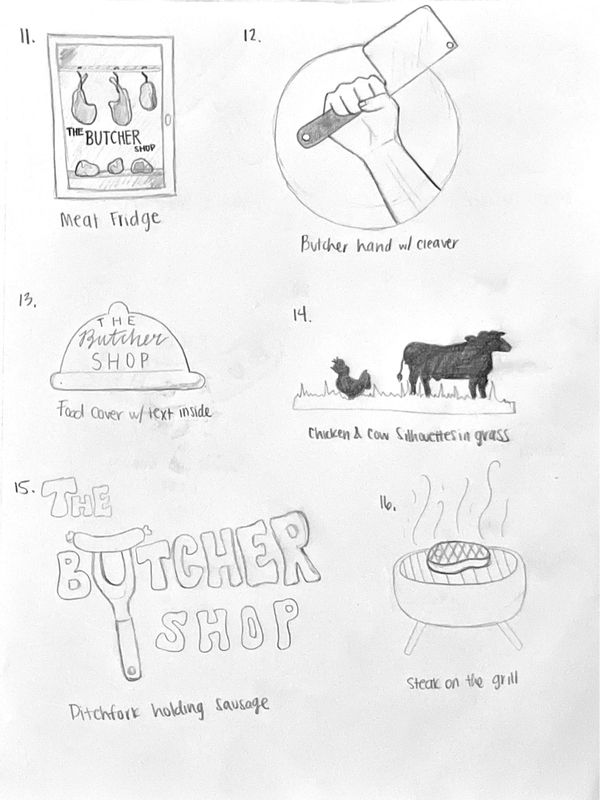 11.
THE BUTCHER SHOP
Meat Fridge
12.
Butcher hand w/ cleaver
13.
THE
Butcher
SHOP
Food cover w/ text inside
14.
Chicken & Cow Silhouettes in grass
15.
THE
BUTCHER
SHOP
Pitchfork holding sausage
16.
Steak on the grill